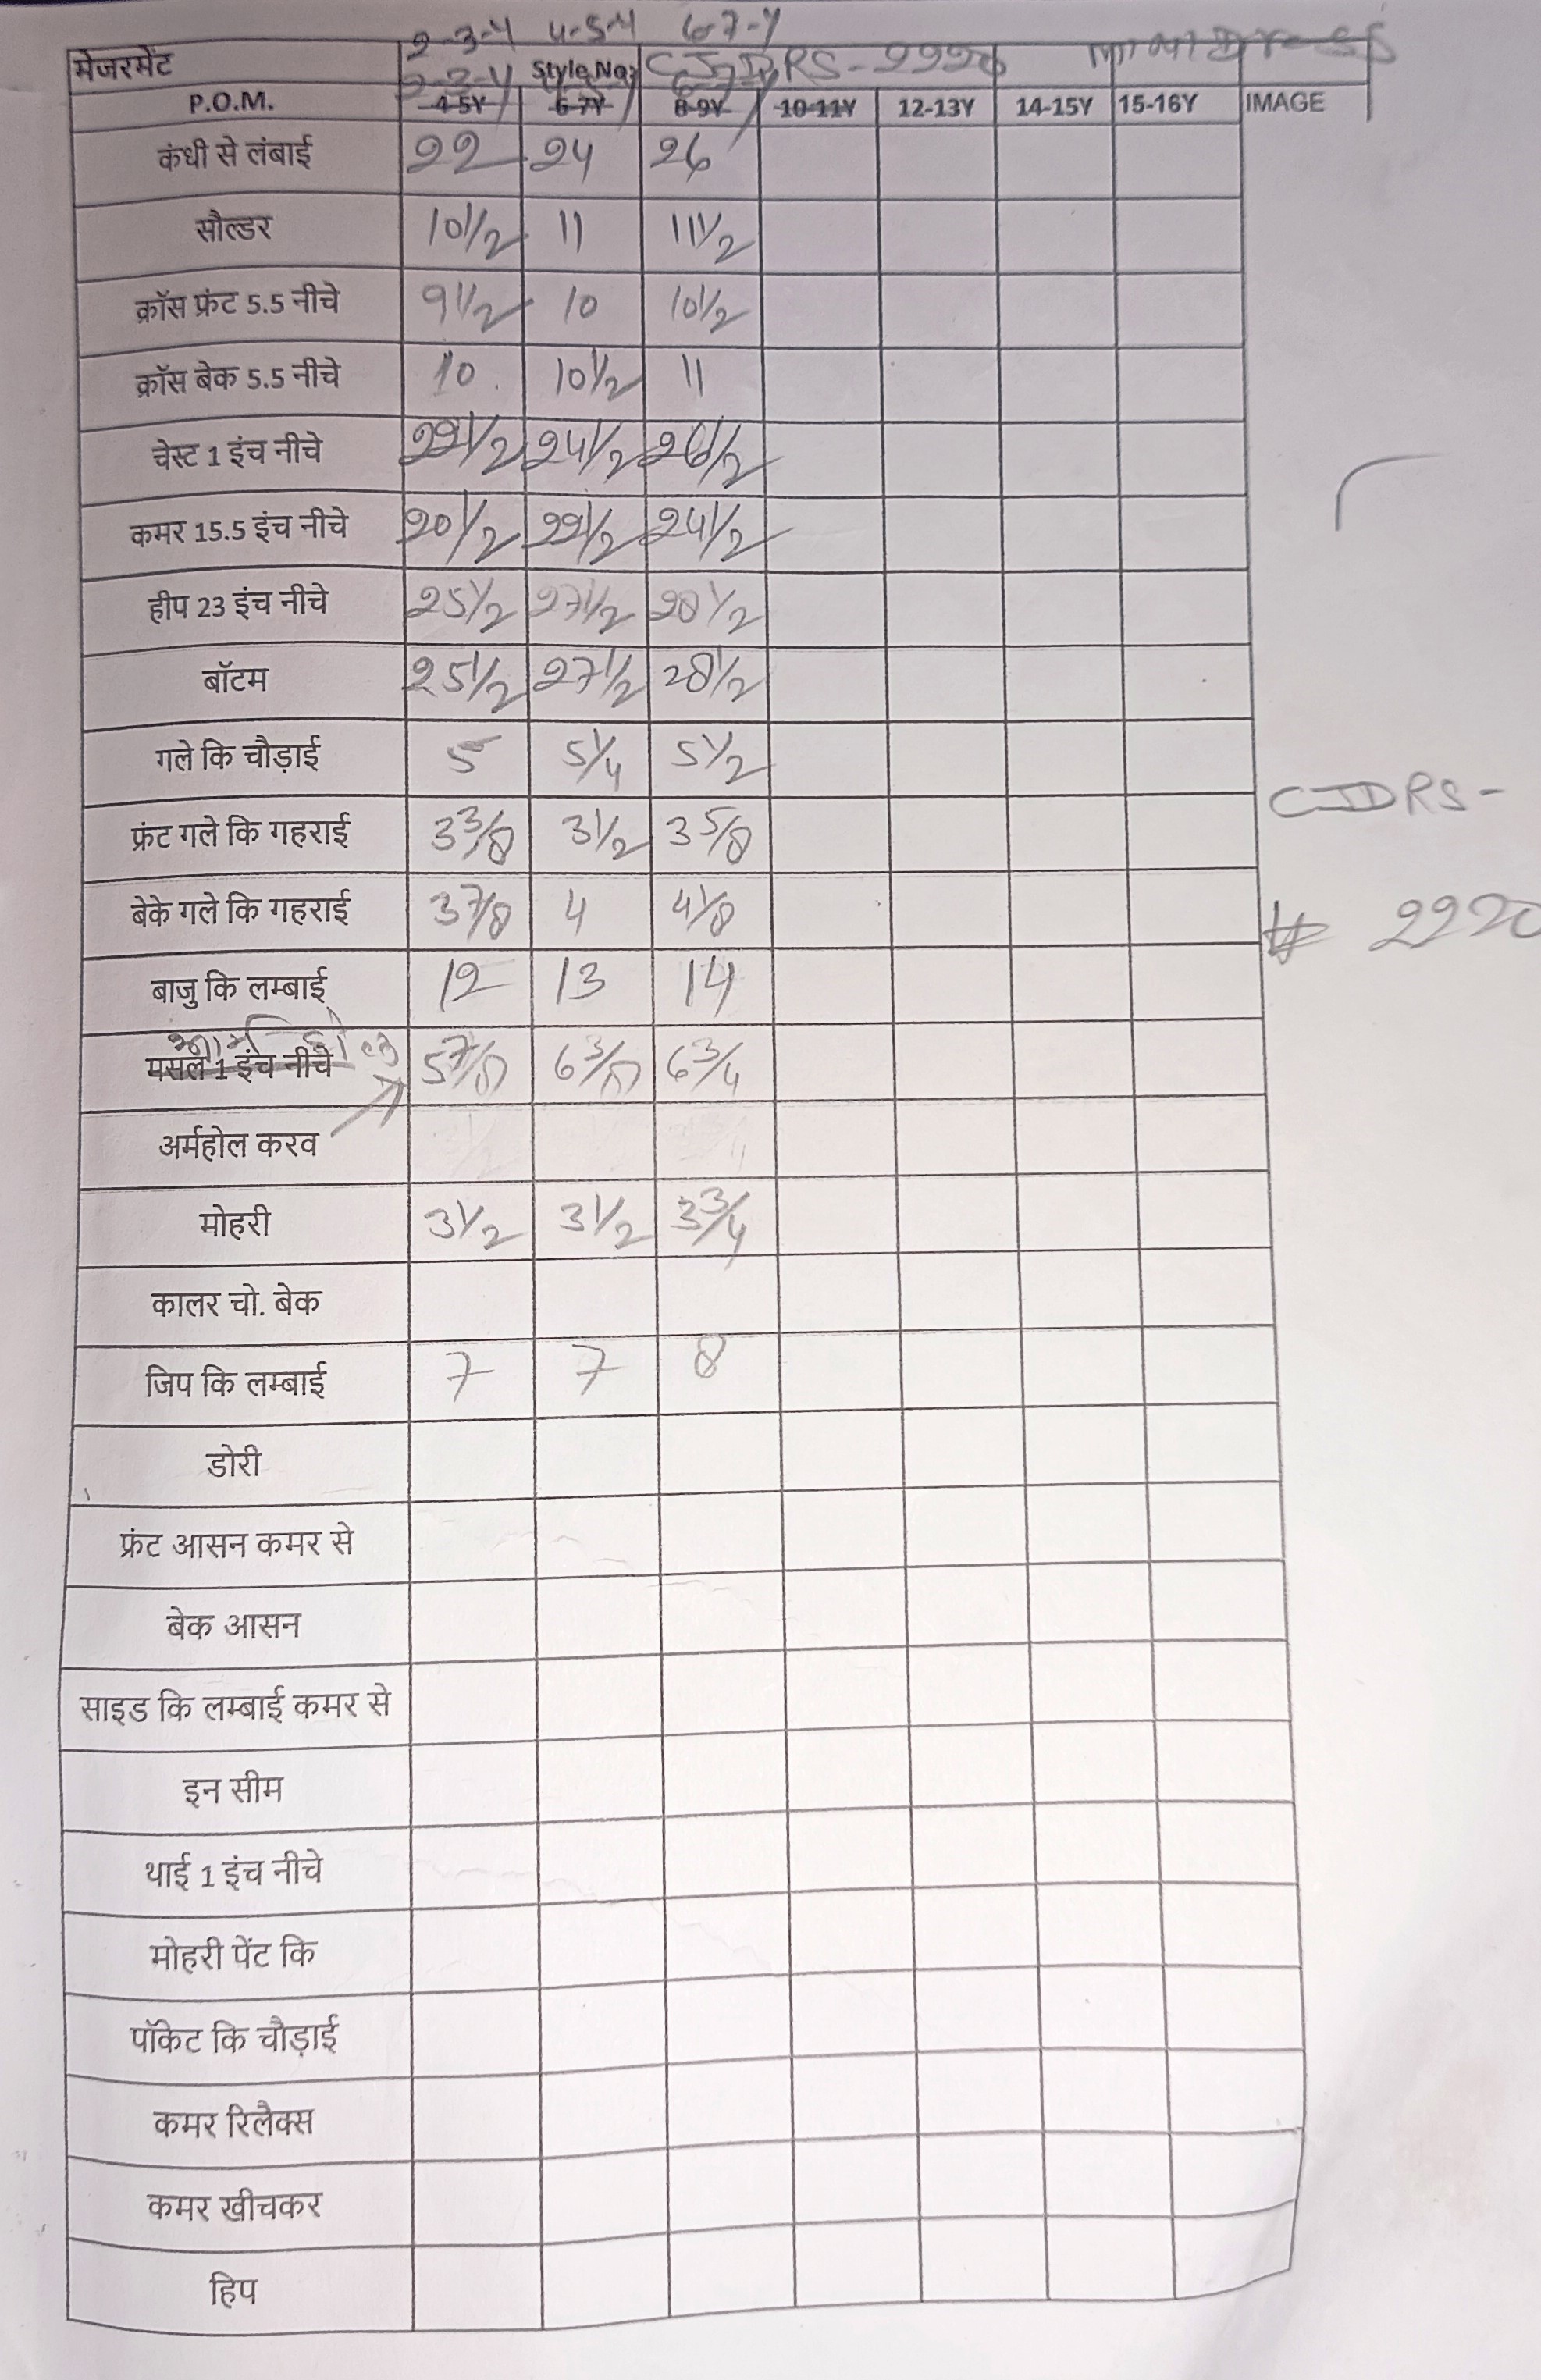 2-3-Y 4-5-Y 6-7-Y
मेजरमेंट Style No: CJDRS-2220
2-3-Y 6-7-Y
P.O.M. 4-5Y 6-7Y 8-9Y 10-11Y 12-13Y 14-15Y 15-16Y IMAGE
कंधी से लंबाई 22 24 26
सौल्डर 10 1/2 11 11 1/2
क्रॉस फ्रंट 5.5 नीचे 9 1/2 10 10 1/2
क्रॉस बेक 5.5 नीचे 10 10 1/2 11
चेस्ट 1 इंच नीचे 22 1/2 24 1/2 26 1/2
कमर 15.5 इंच नीचे 20 1/2 22 1/2 24 1/2
हीप 23 इंच नीचे 25 1/2 27 1/2 28 1/2
बॉटम 25 1/2 27 1/2 28 1/2
गले कि चौड़ाई 5 5 1/4 5 1/2
CJDRS-
फ्रंट गले कि गहराई 3 3/8 3 1/2 3 5/8
बेके गले कि गहराई 3 7/8 4 4 1/8
# 2220
बाजु कि लम्बाई 12 13 14
मसल 1 इंच नीचे 5 7/8 6 3/8 6 3/4
अर्महोल करव
मोहरी 3 1/2 3 1/2 3 3/4
कालर चो. बेक
जिप कि लम्बाई 7 7 8
डोरी
फ्रंट आसन कमर से
बेक आसन
साइड कि लम्बाई कमर से
इन सीम
थाई 1 इंच नीचे
मोहरी पेंट कि
पॉकेट कि चौड़ाई
कमर रिलैक्स
कमर खीचकर
हिप